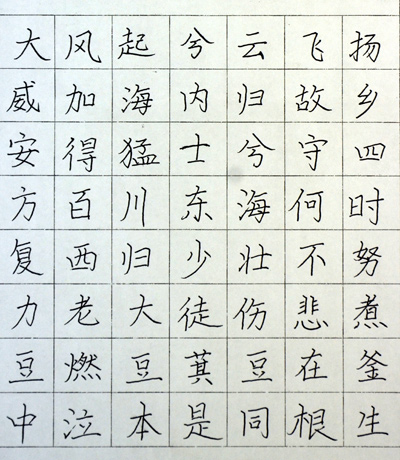 大风起兮云飞扬
威加海内归故乡
安得猛士兮守四
方百川东海何时
复西归少壮不努
力老大徒伤悲煮
豆燃豆萁豆在釜
中泣本是同根生